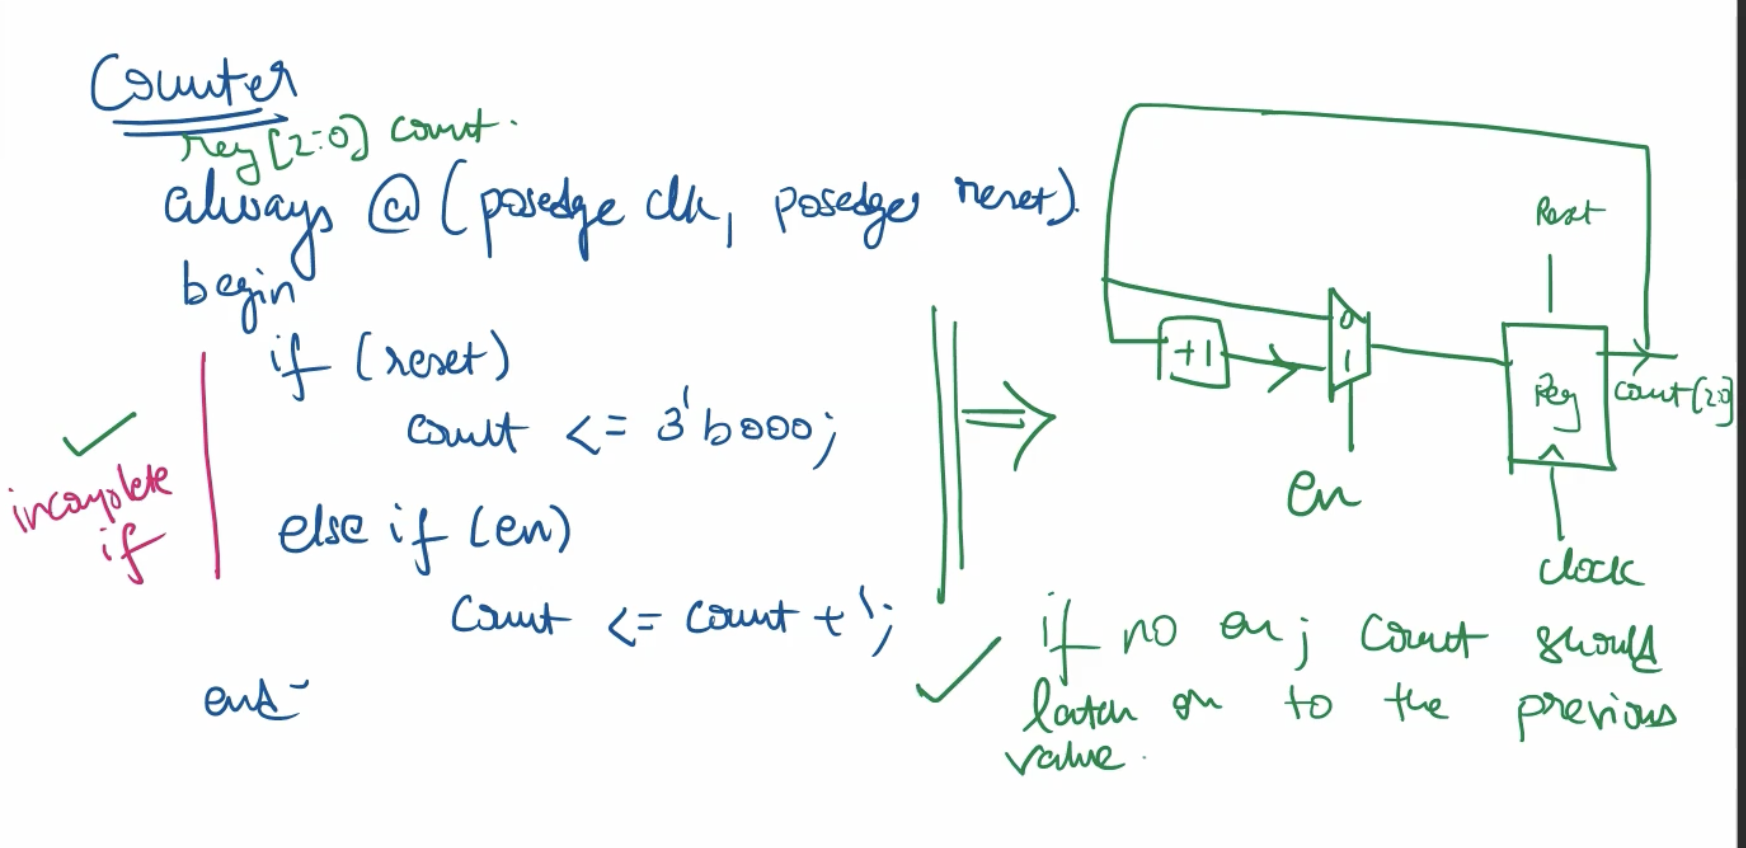 Counter
reg [2:0] count.
always @ (posedge clk, posedge reset).
begin
if (reset)
count <= 3'b000;
else if (en)
count <= count + 1;
end
incomplete
if
Reset
0
1
+1
Reg
count[2:0]
en
clock
if no en; count should
latch on to the previous
value.